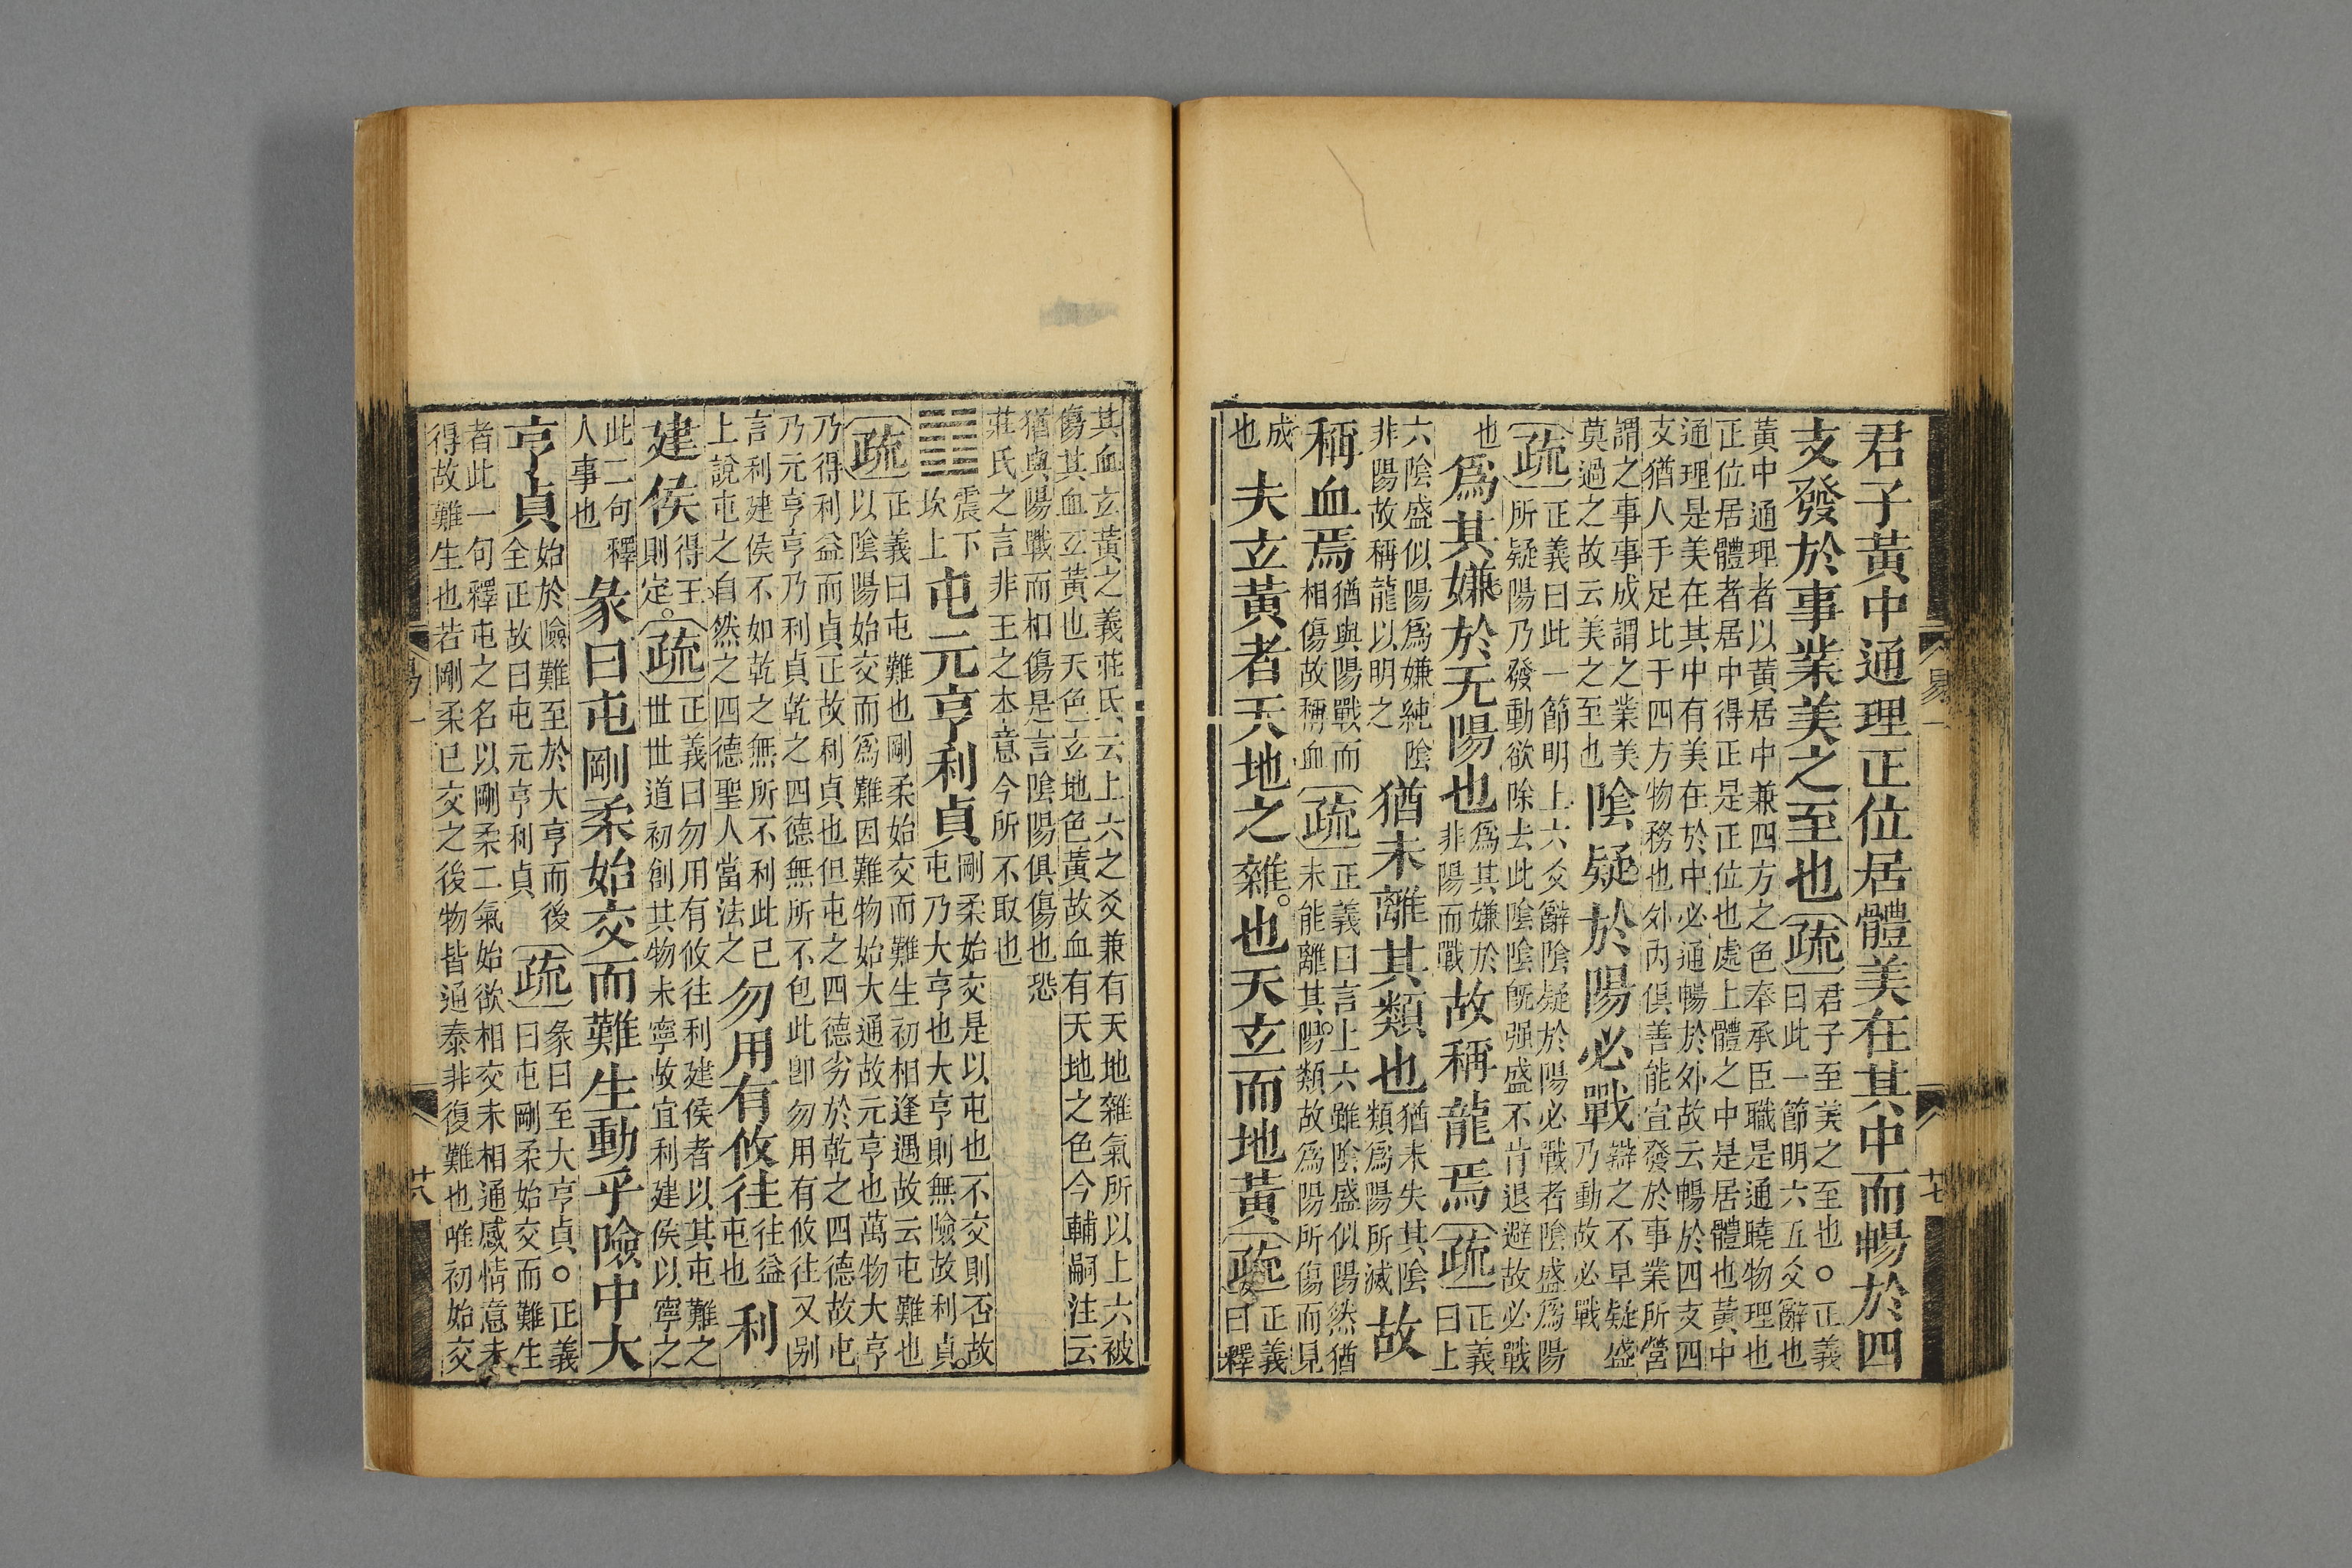 君子黃中通理正位居體美在其中而暢於四
支發於事業美之至也疏君子至美之至也○正義
曰此一節明六五爻辭也
黃中通理者以黃居中兼四方之色奉承臣職是通曉物理也
正位居體者居中得正是正位也處上體之中是居體也黃中
通理是美在其中有美在於中必通暢於外故云暢於四支四
支猶人手足比于四方物務也外內俱善能宜發於事業所營
謂之事事成謂之業美
莫過之故云美之至也
陰疑於陽必戰
辯之不早疑盛
乃動故必戰
疏正義曰此一節明上六爻辭陰疑於陽必戰者陰盛爲陽
所疑陽乃發動欲除去此陰陰旣强盛不肯退避故必戰
也爲其嫌於无陽也
爲其嫌於
非陽而戰
故稱龍焉疏正義
曰上
六陰盛似陽爲嫌純陰
非陽故稱龍以明之
猶未離其類也
猶未失其陰
類爲陽所滅
故
稱血焉
猶與陽戰而
相傷故稱血
疏正義曰言上六雖陰盛似陽然猶
未能離其陽類故爲陽所傷而見
成
也
夫玄黃者天地之雜也天玄而地黃疏正義
曰釋
易一
廿七
其血玄黃之義莊氏云上六之爻兼有天地雜氣所以上六被
傷其血玄黃也天色玄地色黃故血有天地之色今輔嗣注云
猶與陽戰而相傷是言陰陽俱傷也恐
莊氏之言非王之本意今所不取也
䷂震下
坎上
屯元亨利貞
剛柔始交是以屯也不交則否故
屯乃大亨也大亨則無險故利貞
疏正義曰屯難也剛柔始交而難生初相逢遇故云屯難也
以陰陽始交而爲難因難物始大通故元亨也萬物大亨
乃得利益而貞正故利貞也但屯之四德劣於乾之四德故屯
乃元亨亨乃利貞乾之四德無所不包此卽勿用有攸往又别
言利建侯不如乾之無所不利此已
上說屯之自然之四德聖人當法之
勿用有攸往
往益
屯也
利
建侯
得王
則定
疏正義曰勿用有攸往利建侯者以其屯難之
世世道初創其物未寧故宜利建侯以寧之
此二句釋
人事也
彖曰屯剛柔始交而難生動乎險中大
亨貞
始於險難至於大亨而後
全正故曰屯元亨利貞
疏彖曰至大亨貞○正義
曰屯剛柔始交而難生
者此一句釋屯之名以剛柔二氣始欲相交未相通感情意未
得故難生也若剛柔已交之後物皆通泰非復難也唯初始交
易一
廿八